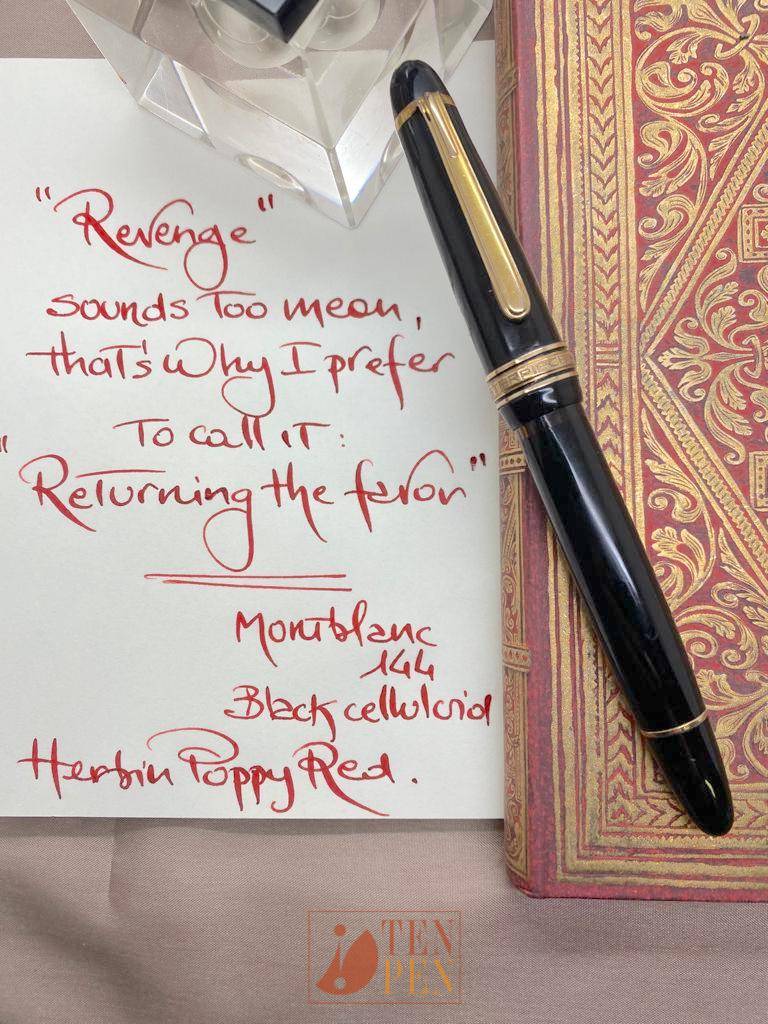 "Revenge"
sounds too mean,
that's why I prefer
to call it:
"Returning the favor"
Montblanc
144
Black celluloid
Herbin Poppy Red.
TEN
PEN